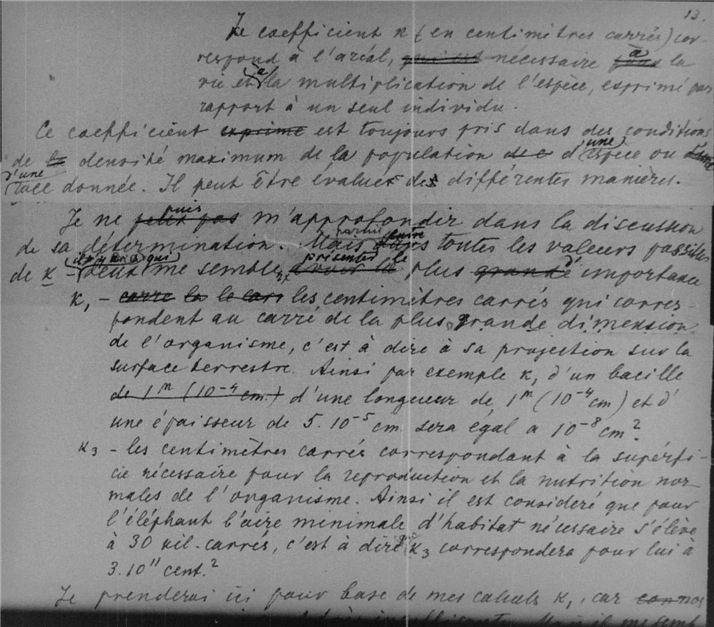 13.
Le coefficient κ (en centimètres carrés) cor-
respond à l'aréal, qui est nécessaire à la
vie et à la multiplication de l'espèce, exprimé par
rapport à un seul individu.
Ce coefficient exprime est toujours pris dans des conditions
de la densité maximum de la population d'une espèce ou
d'une race donnée. Il peut être évalué de différentes manières.
Je ne puis pas m'approfondir dans la discussion
de sa détermination. Mais parmi toutes les valeurs possibles
de κ – il y en a deux qui me semblent présenter le plus grande d'importance
κ, – carré les centimètres carrés qui corres-
pondent au carré de la plus grande dimension
de l'organisme, c'est à dire à sa projection sur la
surface terrestre. Ainsi par exemple κ, d'un bacille
de 1ᵐ (10⁻⁴ cm) d'une longueur de 1ᵐ (10⁻⁴ cm) et d'
une épaisseur de 5.10⁻⁵ cm sera égal à 10⁻⁸ cm²
κ₃ – les centimètres carrés correspondant à la superfi-
cie nécessaire pour la reproduction et la nutrition nor-
males de l'organisme. Ainsi il est consideré que pour
l'éléphant l'aire minimale d'habitat nécessaire s'élève
à 30 kil. carrés, c'est à dire κ₃ correspondera pour lui à
3.10¹¹ cent.²
Je prenderai ici pour base de mes calculs κ, car